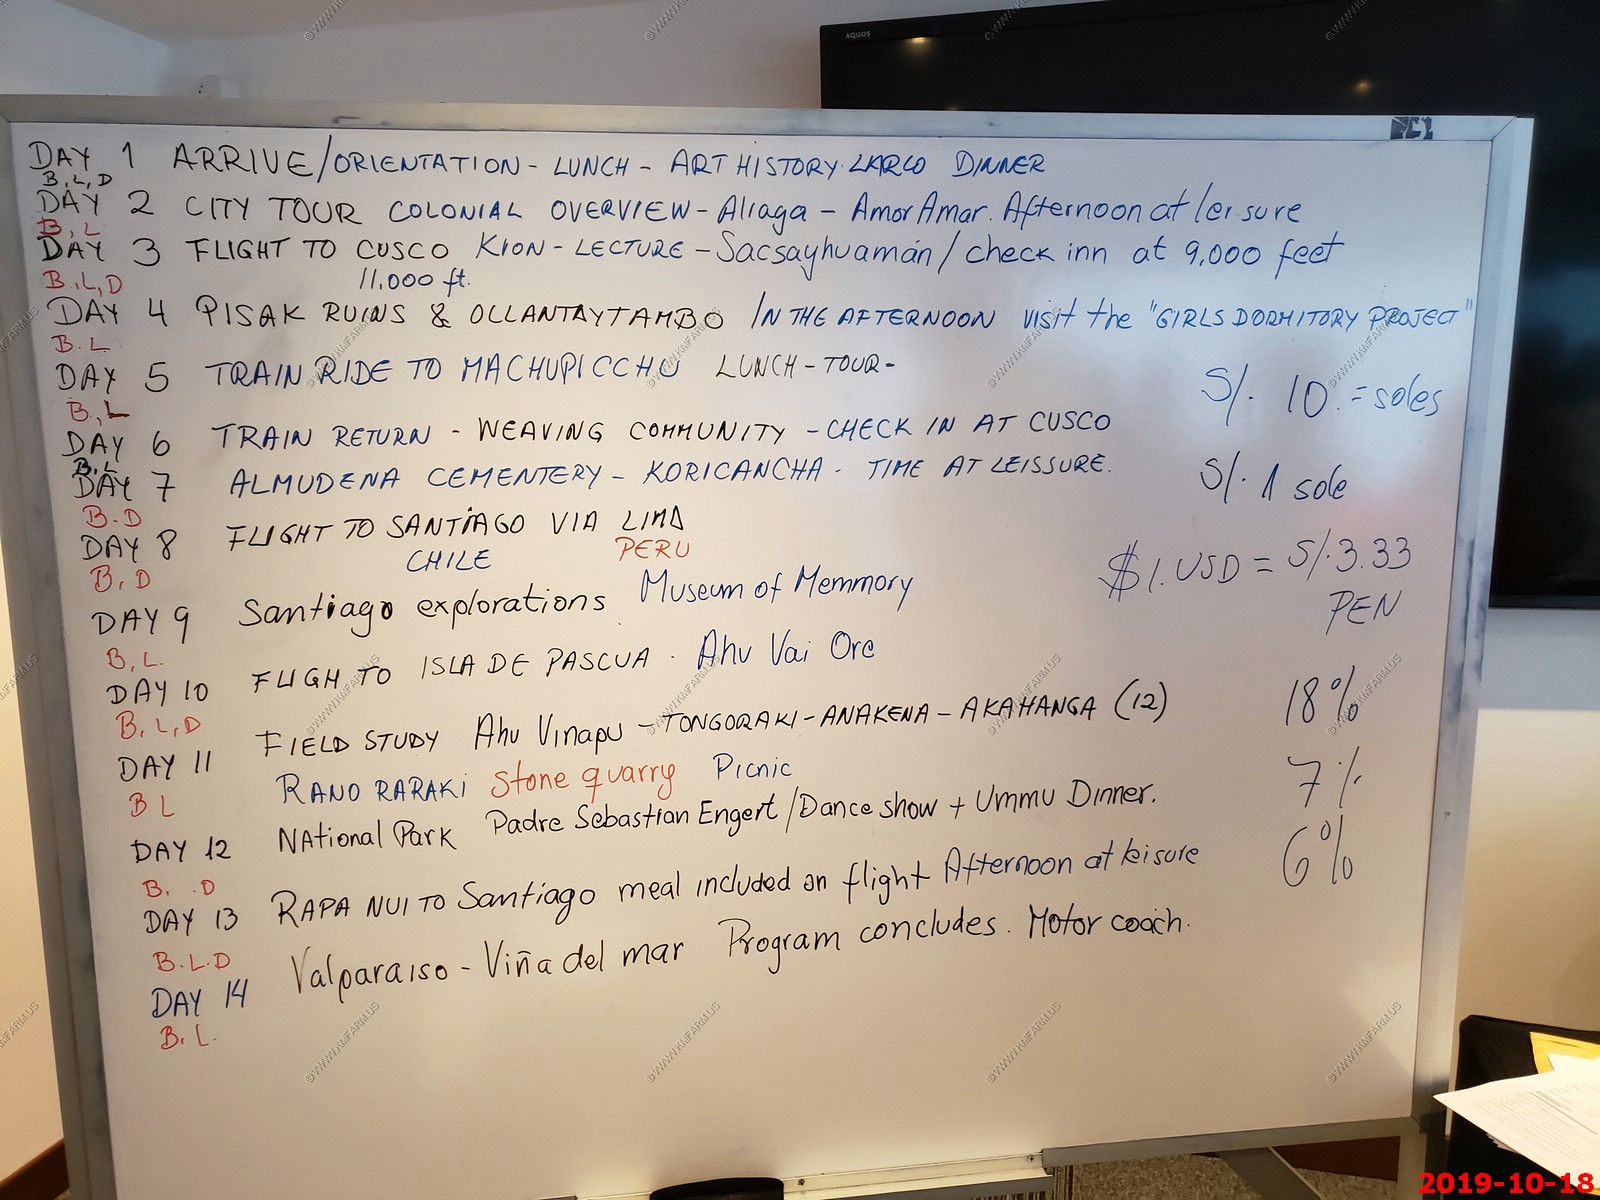 AQUOS
DAY 1 ARRIVE/ORIENTATION - LUNCH - ART HISTORY LARCO DINNER
B, L, D
DAY 2 CITY TOUR COLONIAL OVERVIEW - Aliaga - Amor Amar. Afternoon at leisure
B, L
DAY 3 FLIGHT TO CUSCO KION - LECTURE - Sacsayhuamán / check inn at 9,000 feet
B, L, D 11,000 ft.
DAY 4 PISAK RUINS & OLLANTAYTAMBO / IN THE AFTERNOON visit the "GIRLS DORMITORY PROJECT"
B. L
DAY 5 TRAIN RIDE TO MACHUPICCHU LUNCH - TOUR -
S/. 10. = soles
B., L
DAY 6 TRAIN RETURN - WEAVING COMMUNITY - CHECK IN AT CUSCO
B, L
DAY 7 ALMUDENA CEMENTERY - KORICANCHA - TIME AT LEISSURE.
S/. 1 sole
B. D
DAY 8 FLIGHT TO SANTIAGO VIA LIMA
CHILE PERU
$1. USD = S/. 3.33
PEN
B, D
DAY 9 Santiago explorations Museum of Memmory
B, L.
DAY 10 FLIGH TO ISLA DE PASCUA . Ahu Vai Ore
B, L, D
DAY 11 FIELD STUDY Ahu Vinapu - TONGORAKI - ANAKENA - AKAHANGA (12)
18%
B L RANO RARAKI Stone quarry Picnic
7%
DAY 12 NATional Park Padre Sebastian Engert / Dance show + Ummu Dinner.
6%
B. . D
DAY 13 RAPA NUI TO Santiago meal included on flight Afternoon at leisure
B. L. D
DAY 14 Valparaiso - Viña del mar Program concludes. Motor coach.
B. L.
©WWW.KMFARM.US
2019-10-18